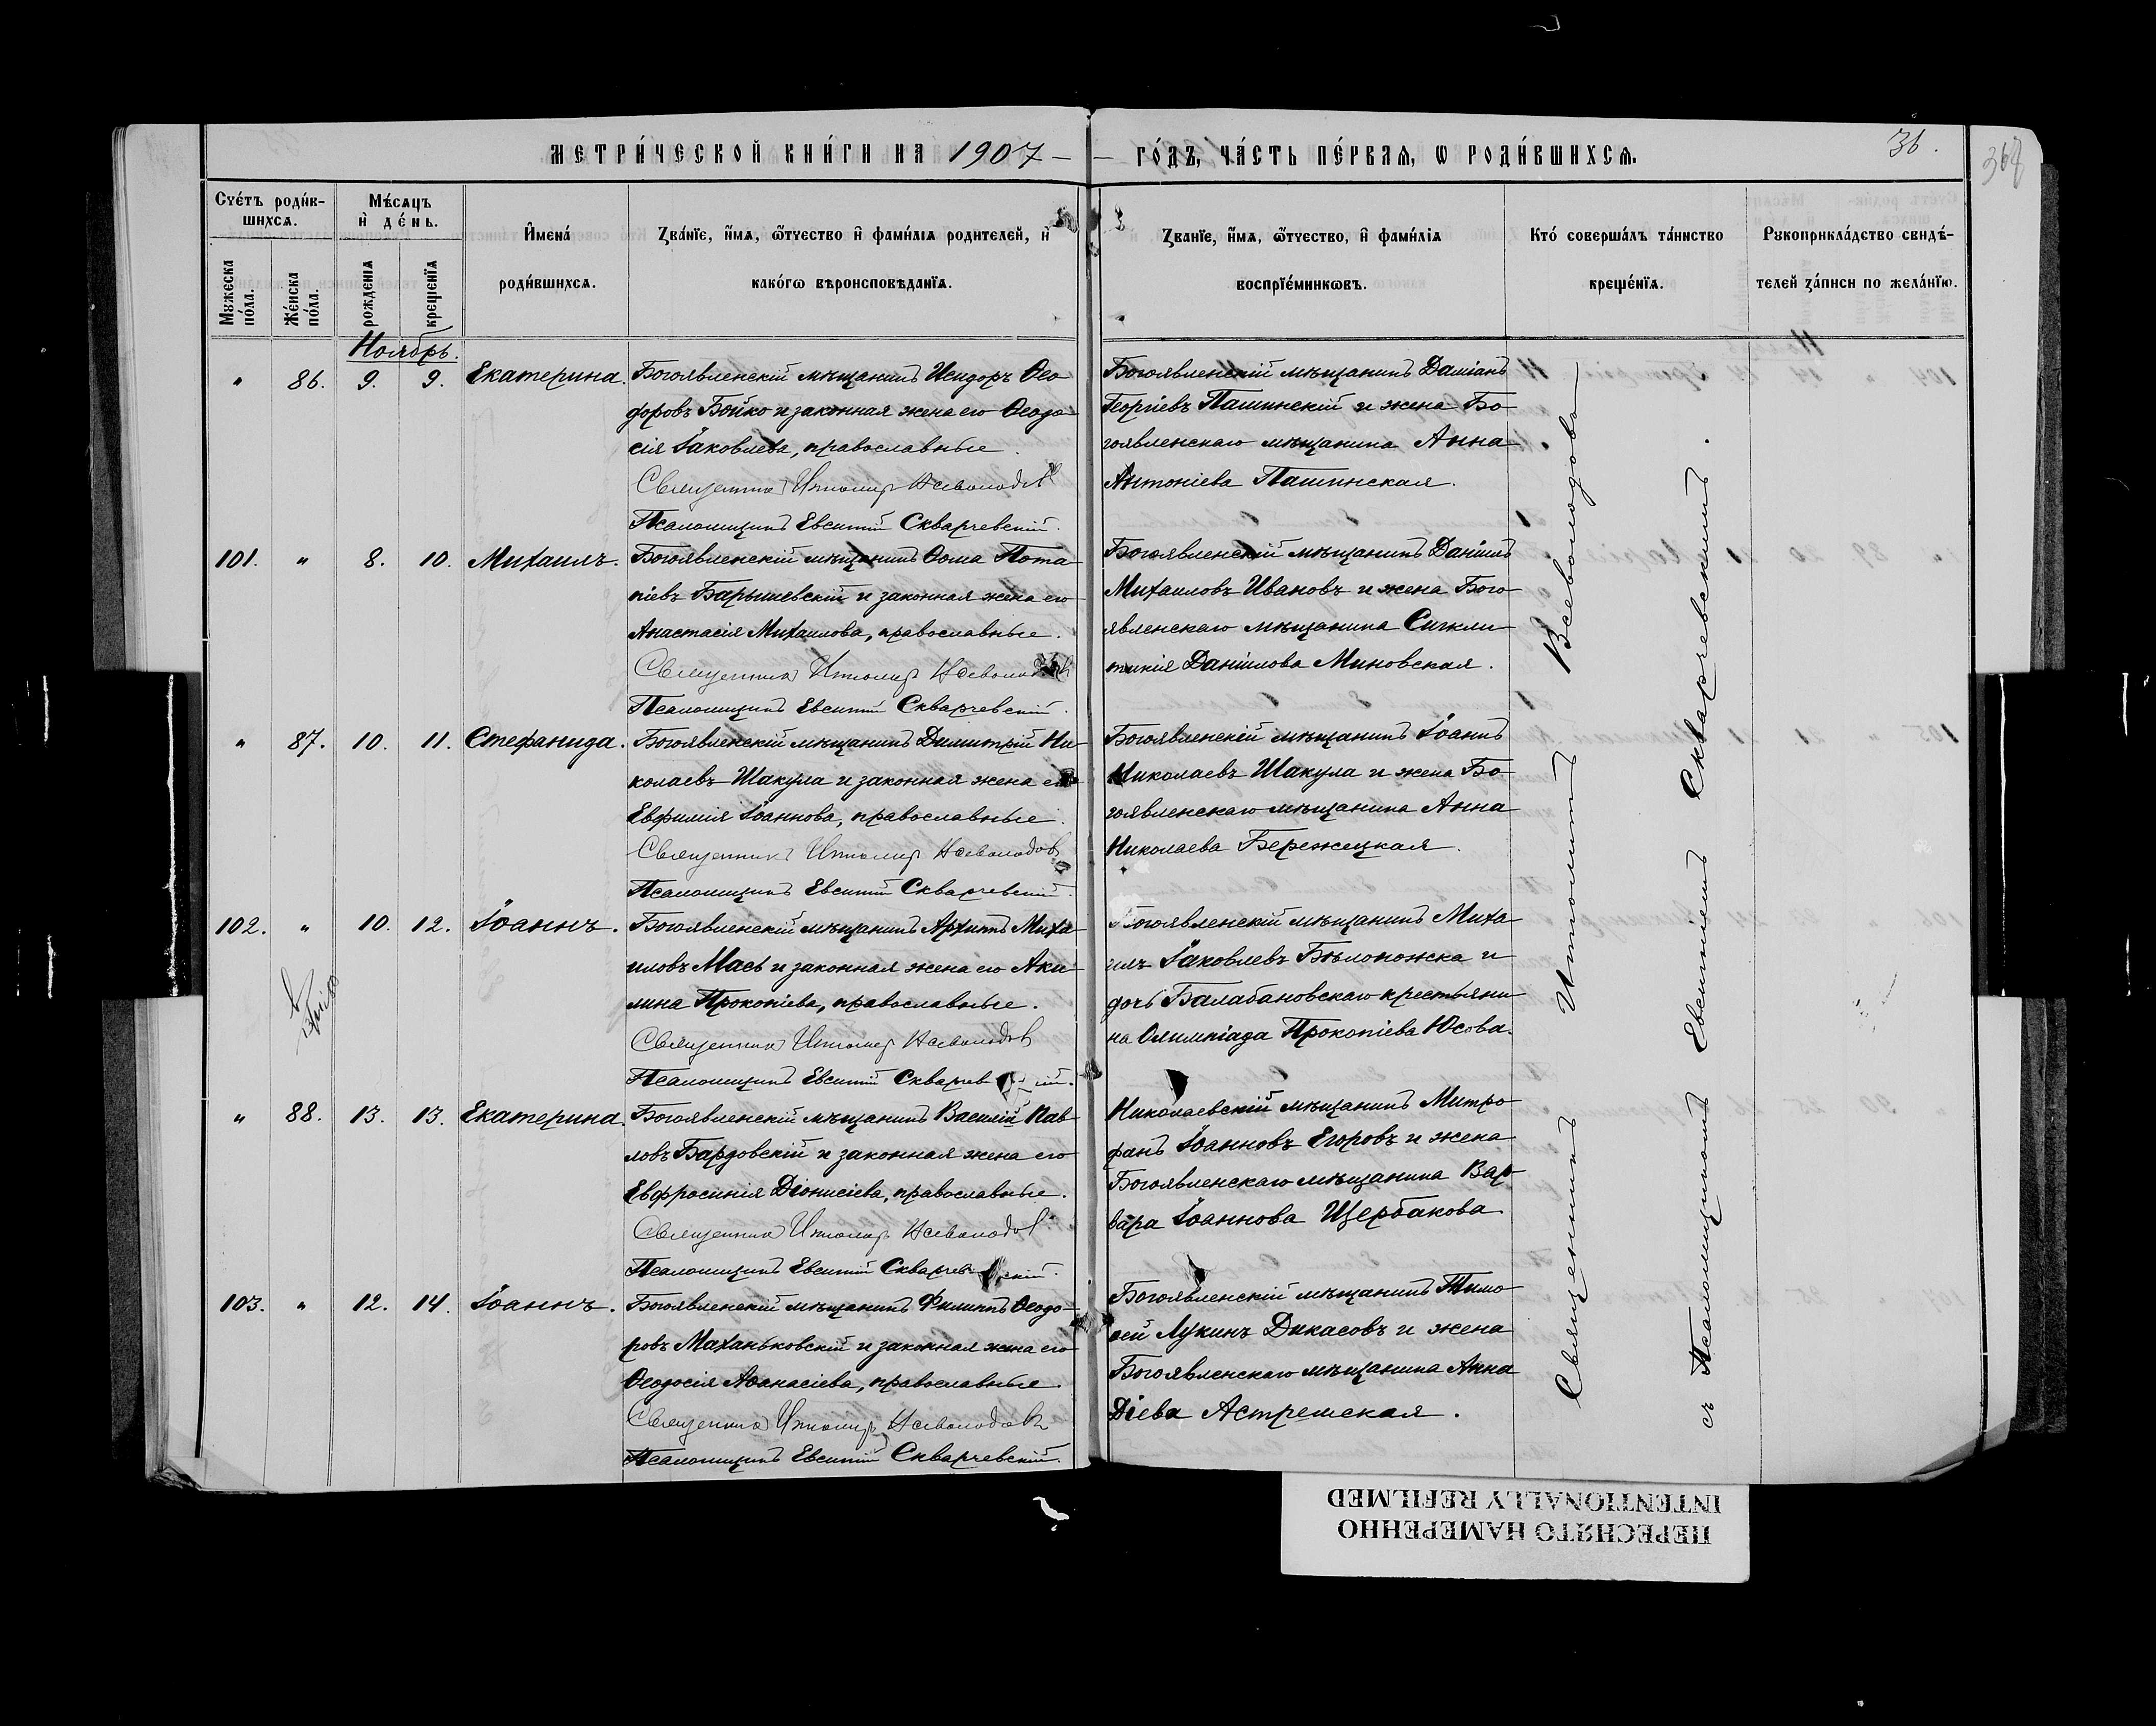 МЕТРИ́ЧЕСКОЙ КНИ́ГИ НА 1907 — — ГО́ДЪ, ЧА́СТЬ ПЕ́РВАѦ, Ѡ РОДИ́ВШИХСѦ.
36.
367
Сче́тъ роди́в-
шихсѧ.
Мѣ́сѧцъ
и҆ де́нь.
Мꙋжеска по́ла.
Же́нска по́ла.
рожденїѧ
крещенїѧ
И҆мена́
роди́вшихсѧ.
Зва́нїе, и҆́мѧ, ѻ҆́тчество и҆ фами́лїѧ родителей, и҆
како́гѡ вѣроисповѣданїѧ.
Званїе, и҆́мѧ, ѻ҆́тчество, и҆ фами́лїѧ
воспрїе́мникѡвъ.
Кто́ соверша́лъ та́инство
креще́нїѧ.
Рꙋкоприкла́дство свидѣ́-
телей за́писи по жела́нїю.
Ноябрь.
" 86. 9. 9. Екатерина.
Богоявленскій мѣщанинъ Исидоръ Ѳео
доровъ Бойко и законная жена его Ѳеодо
сія Іаковлева, православные.
Священникъ Ипполитъ Всеволодовъ
Псаломщикъ Евсигній Скварчевскій.
Богоявленскій мѣщанинъ Даміанъ
Георгіевъ Пашинскій и жена Бо-
гоявленскаго мѣщанина Анна
Антоніева Пашинская.
101. " 8. 10. Михаилъ.
Богоявленскій мѣщанинъ Ѳома Пота
піевъ Барышевскій и законная жена его
Анастасія Михаилова, православные.
Священникъ Ипполитъ Всеволодовъ
Псаломщикъ Евсигній Скварчевскій.
Богоявленскій мѣщанинъ Даніилъ
Михаиловъ Ивановъ и жена Бого-
явленскаго мѣщанина Сигкли-
тикія Даніилова Миновская.
" 87. 10. 11. Стефанида.
Богоявленскій мѣщанинъ Димитрій Ни
колаевъ Шакула и законная жена его
Евфимія Іоаннова, православные.
Священникъ Ипполитъ Всеволодовъ
Псаломщикъ Евсигній Скварчевскій.
Богоявленскій мѣщанинъ Іоаннъ
Николаевъ Шакула и жена Бо-
гоявленскаго мѣщанина Анна
Николаева Бережецкая.
102. " 10. 12. Іоаннъ.
Богоявленскій мѣщанинъ Архипъ Миха
иловъ Мась и законная жена его Аки
лина Прокопіева, православные.
Священникъ Ипполитъ Всеволодовъ
Псаломщикъ Евсигній Скварчевскій.
Богоявленскій мѣщанинъ Миха
илъ Іаковлевъ Бѣлоножка и
дочь Балабановскаго крестьяни
на Олимпіада Прокопіева Юсова.
" 88. 13. 13. Екатерина.
Богоявленскій мѣщанинъ Василій Пав
ловъ Бардовскій и законная жена его
Евфросинія Діонисіева, православные.
Священникъ Ипполитъ Всеволодовъ
Псаломщикъ Евсигній Скварчевскій.
Николаевскій мѣщанинъ Митро
фанъ Іоанновъ Егоровъ и жена
Богоявленскаго мѣщанина Вар-
вара Іоаннова Щербакова
103. " 12. 14. Іоаннъ.
Богоявленскій мѣщанинъ Филиппъ Ѳеодо-
ровъ Маханьковскій и законная жена его
Ѳеодосія Аѳанасіева, православные.
Священникъ Ипполитъ Всеволодовъ
Псаломщикъ Евсигній Скварчевскій.
Богоявленскій мѣщанинъ Тимо-
ѳей Лукинъ Дикасовъ и жена
Богоявленскаго мѣщанина Анна
Діева Астремская.
Священникъ Ипполитъ Всеволодовъ
съ Псаломщикомъ Евсигніемъ Скварчевскимъ.
ПЕРЕСНЯТО НАМЕРЕННО
INTENTIONALLY REFILMED